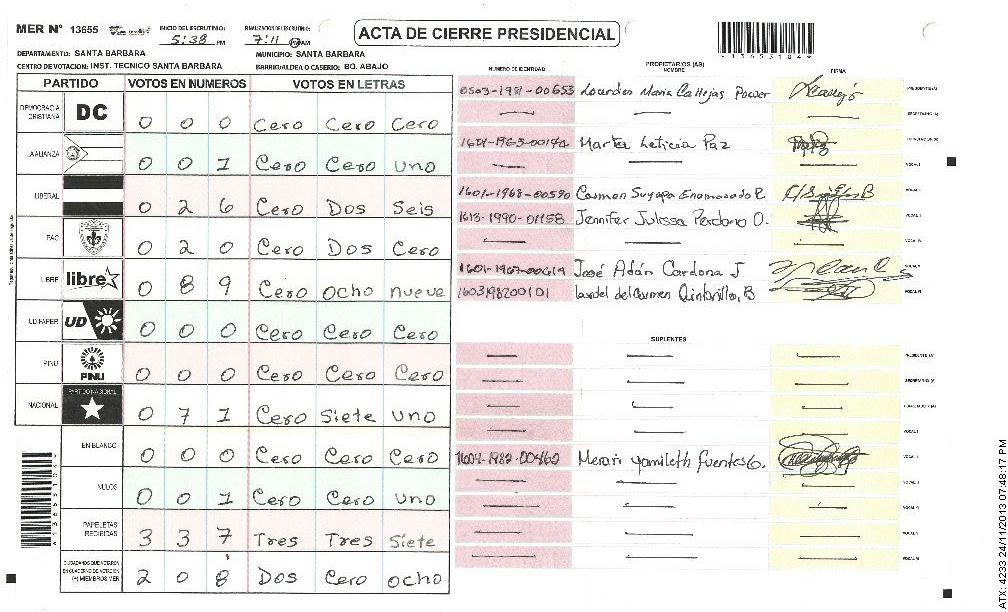 MER N° 13655
INICIO DEL ESCRUTINIO: 5:38 PM
FINALIZACION DEL ESCRUTINIO: 7:11 PM AM
ACTA DE CIERRE PRESIDENCIAL
DEPARTAMENTO: SANTA BARBARA
MUNICIPIO: SANTA BARBARA
CENTRO DE VOTACION: INST. TECNICO SANTA BARBARA
BARRIO/ALDEA O CASERIO: BO. ABAJO
PARTIDO VOTOS EN NUMEROS VOTOS EN LETRAS
DEMOCRACIA CRISTIANA DC 0 0 0 Cero Cero Cero
LA ALIANZA 0 0 1 Cero Cero uno
LIBERAL 0 2 6 Cero Dos Seis
PAC 0 2 0 Cero Dos Cero
LIBRE libre 0 8 9 Cero ocho nueve
UD FAPER UD 0 0 0 Cero Cero Cero
PINU PINU 0 0 0 Cero Cero Cero
NACIONAL PARTIDO NACIONAL 0 7 1 Cero Siete uno
EN BLANCO 0 0 0 Cero Cero Cero
NULOS 0 0 1 Cero Cero uno
PAPELETAS RECIBIDAS 3 3 7 Tres Tres Siete
CIUDADANOS QUE VOTARON EN CUADERNO DE VOTACION (+) MIEMBROS MER 2 0 8 Dos Cero ocho
PROPIETARIOS (AS)
NUMERO DE IDENTIDAD NOMBRE FIRMA
0503-1981-00653 Lourdes Maria Callejas Power PRESIDENTE (A)
SECRETARIO (A)
Martha Leticia Paz
VOCAL I
1601-1968-00590 Carmen Suyapa Enamorado R.
1613-1990-01158 Jennifer Julissa Perdomo O.
1601-1967-00619 José Adán Cardona J
1603198200101 del Carmen Quintanilla, B
SUPLENTES
PRESIDENTE (A)
SECRETARIO (A)
1604-1982-00462 Merari Yamileth fuentes G.
ATX: 4233 24/11/2013 07:48:17 PM